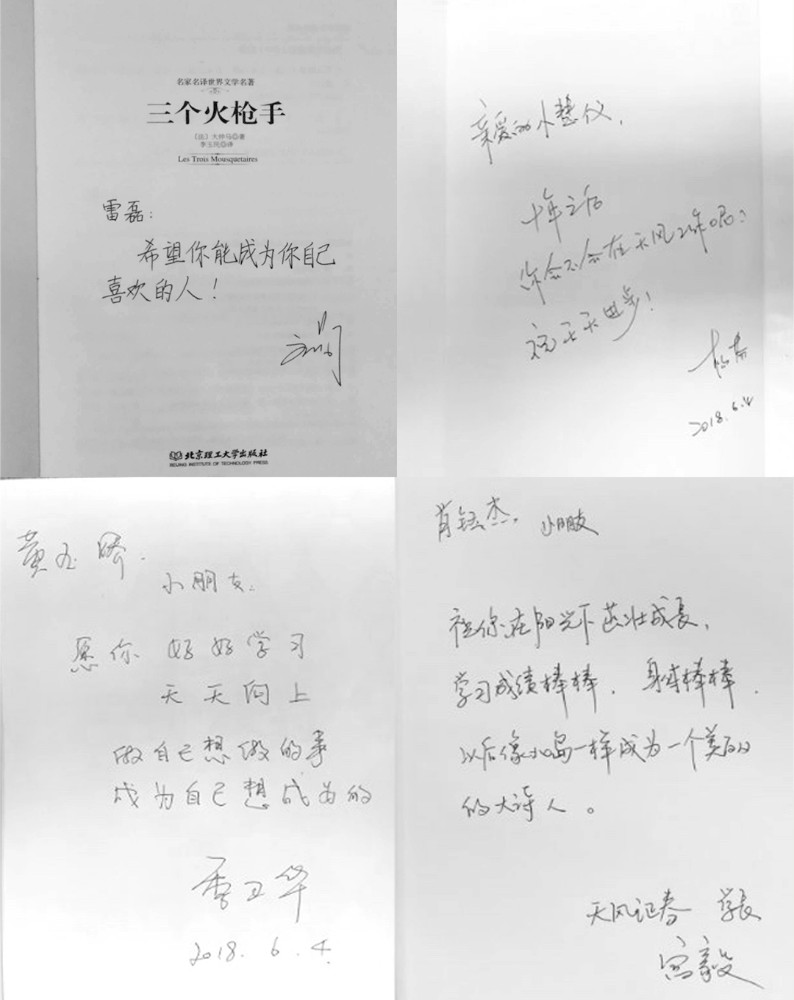 名家名译世界文学名著
三个火枪手
〔法〕大仲马◎著
李玉民◎译
Les Trois Mousquetaires
雷磊：
希望你能成为你自己
喜欢的人！
北京理工大学出版社
BEIJING INSTITUTE OF TECHNOLOGY PRESS
亲爱的小慧仪，
十年之后
你会不会在天风工作呢？
祝天天进步！
2018.6.4
黄玉
小朋友：
愿你 好好学习
天天向上
做自己想做的事
成为自己想成为的
2018.6.4.
肖钰杰 小朋友
祝你在阳光下茁壮成长，
学习成绩棒棒，身体棒棒，
以后像小岛一样成为一个美丽
的大诗人。
天风证券 学长
宫毅